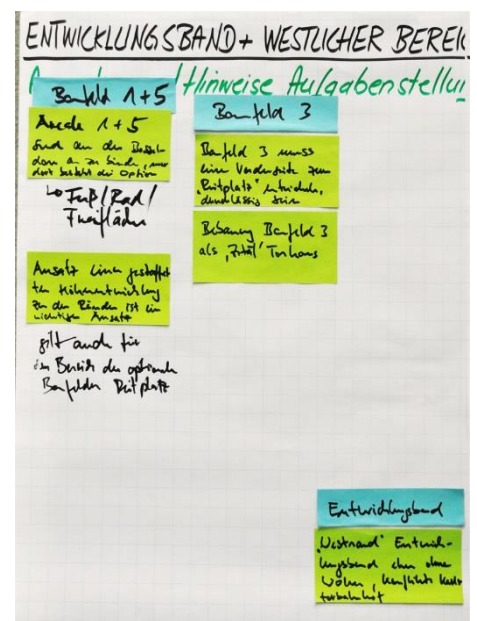 ENTWICKLUNGSBAND + WESTLICHER BEREIC
Hinweise Aufgabenstellu
Baufeld 1+5
Areale 1+5
sind an den
dort besteht die Option
↳ Fuß/Rad/
Freifläche
Ansatz einer gestaffel
ten Höhenentwicklung
zu den Rändern ist ein
wichtiger Ansatz
gilt auch für
den Bereich der optionalen
Baufelder Reitplatz
Baufeld 3
Baufeld 3 muss
eine Vorderseite zum
"Reitplatz" entwickeln,
durchlässig sein
Bebauung Baufeld 3
als Torhaus
Entwicklungsband
"Westrand" Entwick-
lungsband eher ohne
Wohnen, Konflikte